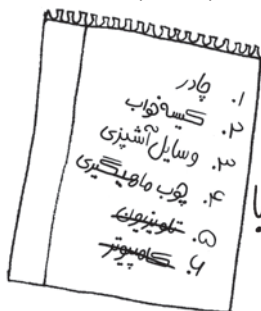 ۱. چادر
۲. کیسه خواب
۳. وسایل آشپزی
۴. چوب ماهیگیری
۵. تلویزیون
۶. کامپیوتر